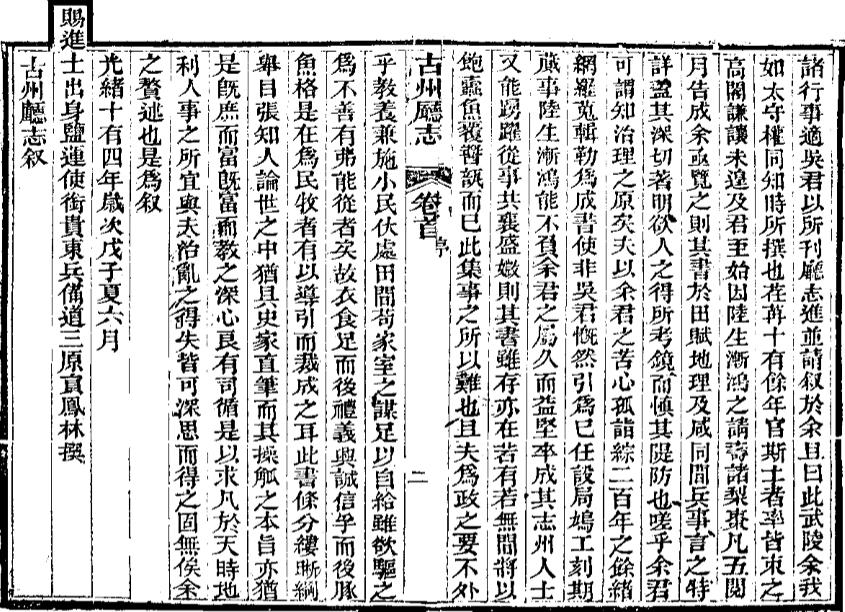 諸行事適吳君以所刊廳志進並請叙於余且曰此武陵余我
如太守權同知時所撰也荏苒十有餘年官斯土者率皆束之
高閣謙讓未遑及君至始因陸生漸鴻之請壽諸梨棗凡五閱
月告成余亟覽之則其書於田賦地理及咸同間兵事言之特
詳蓋其深切著明欲人之得所考鏡而愼其隄防也嗟乎余君
可謂知治理之原矣夫以余君之苦心孤詣綜二百年之餘緒
網羅蒐輯勒爲成書使非吳君慨然引爲己任設局鳩工刻期
蕆事陸生漸鴻能不負余君之屬久而益堅卒成其志州人士
又能踴躍從事共襄盛嫩則其書雖存亦在若有若無間將以
飽蠹魚覆醬瓿而已此集事之所以難也且夫爲政之要不外
古州廳志 卷首 序 二
乎敎養兼施小民伏處田間苟家室之謀足以自給雖欲驅之
爲不善有弗能從者矣故衣食足而後禮義興誠信孚而後豚
魚格是在爲民牧者有以導引而裁成之耳此書條分縷晰綱
舉目張知人論世之中猶具史家直筆而其操觚之本旨亦猶
是旣庶而富旣富而敎之深心良有司循是以求凡於天時地
利人事之所宜與夫治亂之得失皆可深思而得之固無俟余
之贅述也是爲叙
光緒十有四年歲次戊子夏六月
賜進士出身鹽運使銜貴東兵備道三原頁鳳林撰
古州廳志叙